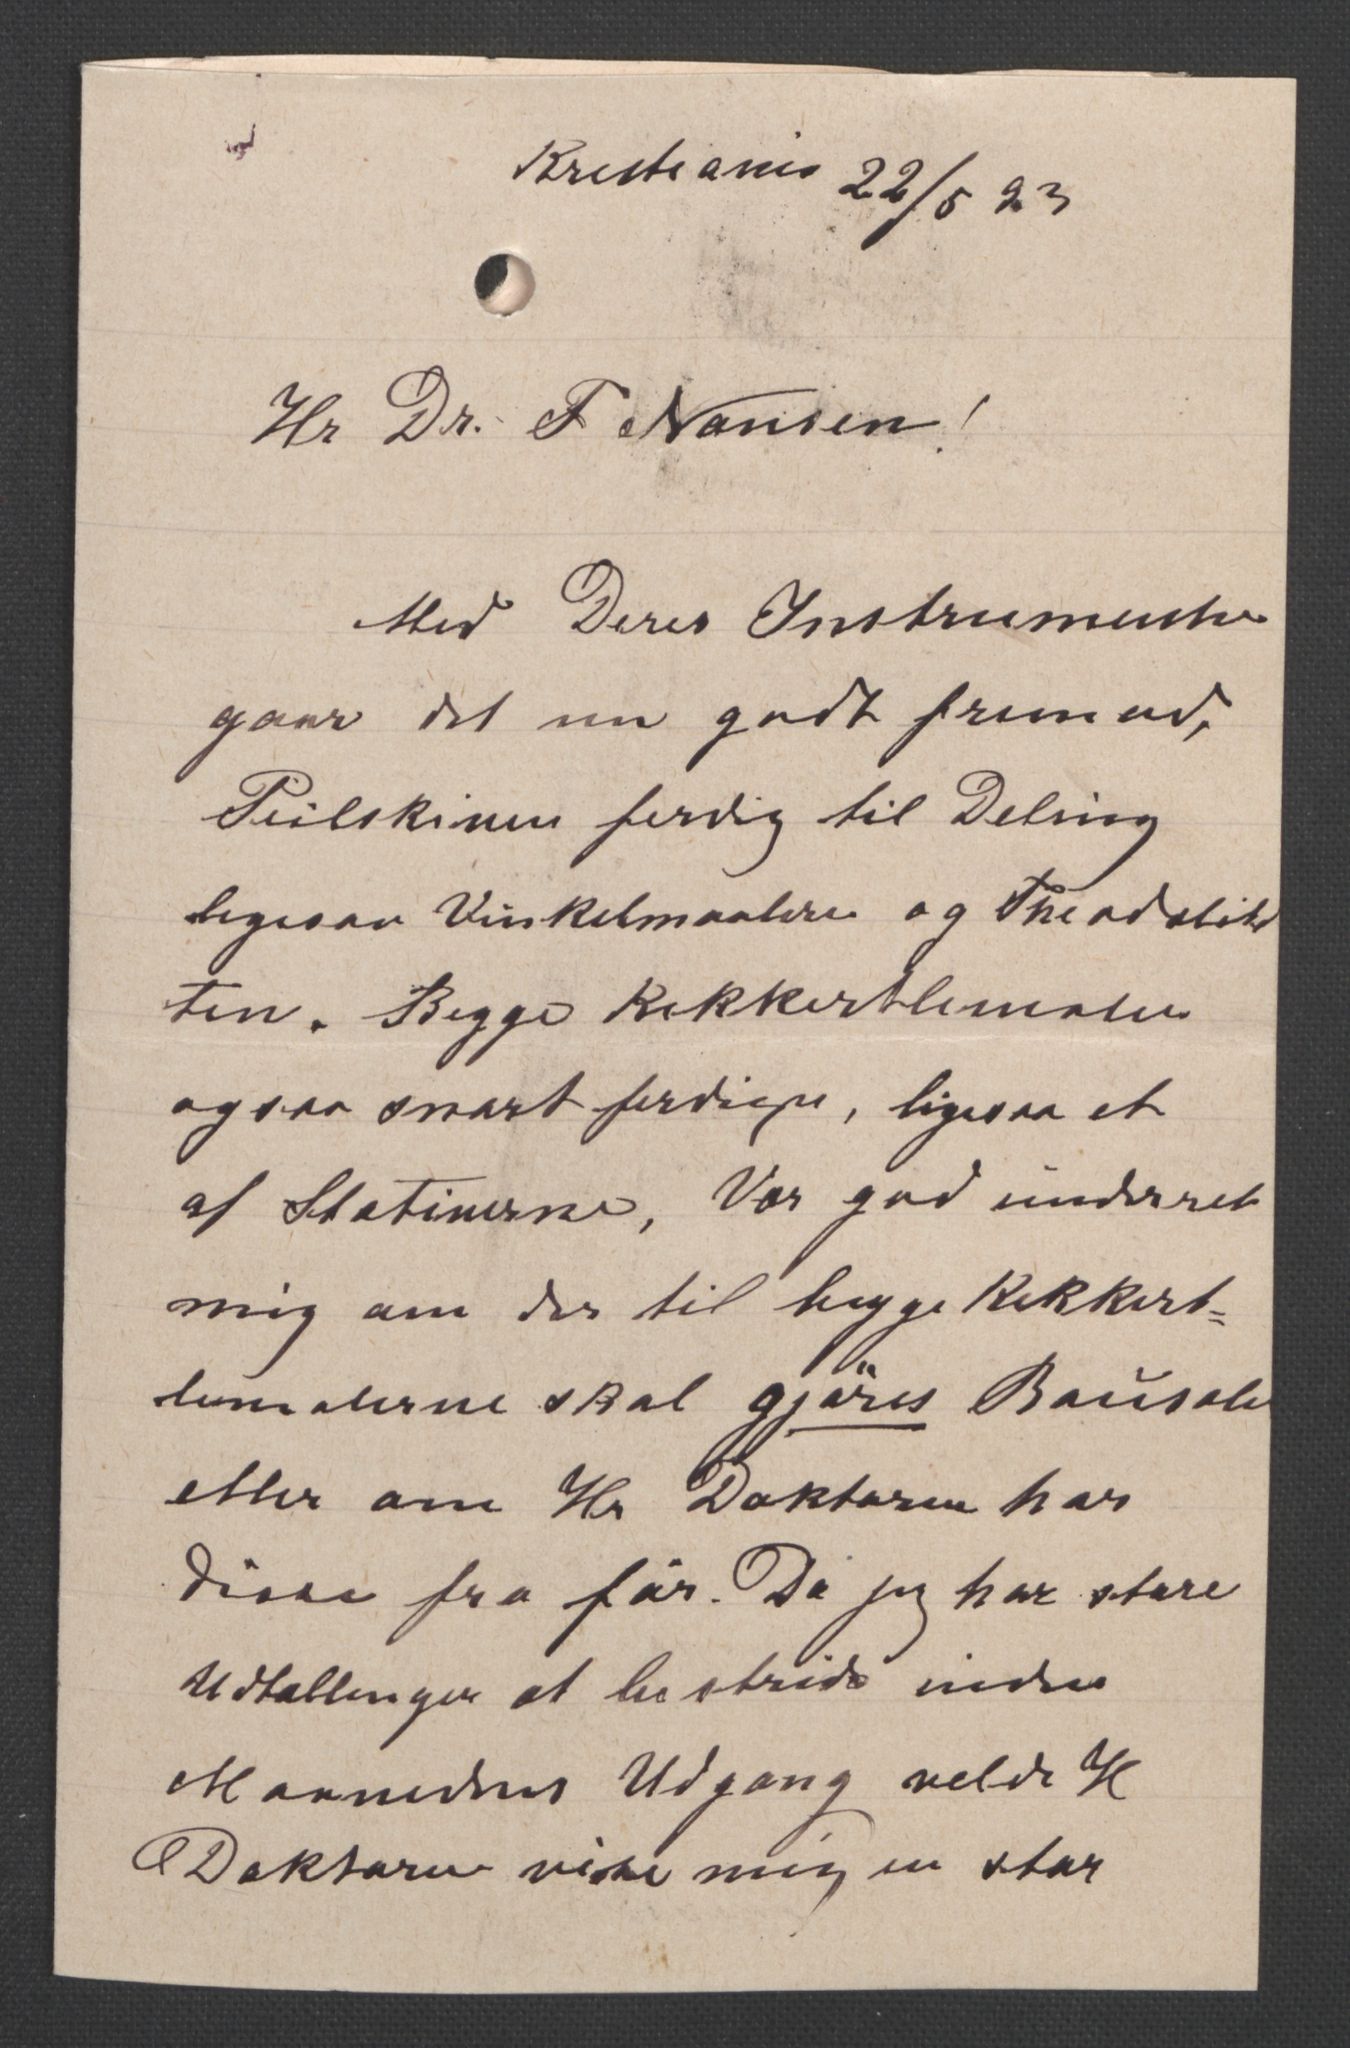 Kristiania 22/5 93
Hr Dr. F Nansen!
Med Deres Instrumenter
gaar det nu godt fremad,
Peilskiven ferdig til Deling
ligesaa Vinkelmaaleren og Theodolit
ten. Begge Kikkert
ogsaa snart ferdige, ligesaa et
af Stativerne, Vær god underret
mig om der til begge Kikkert=
skal gjöres
eller om Hr Doktoren har
disse fra för. Da jeg har store
Udtellinger at bestride inden
Maanedens Udgang vilde H
Doktoren vise mig en stor